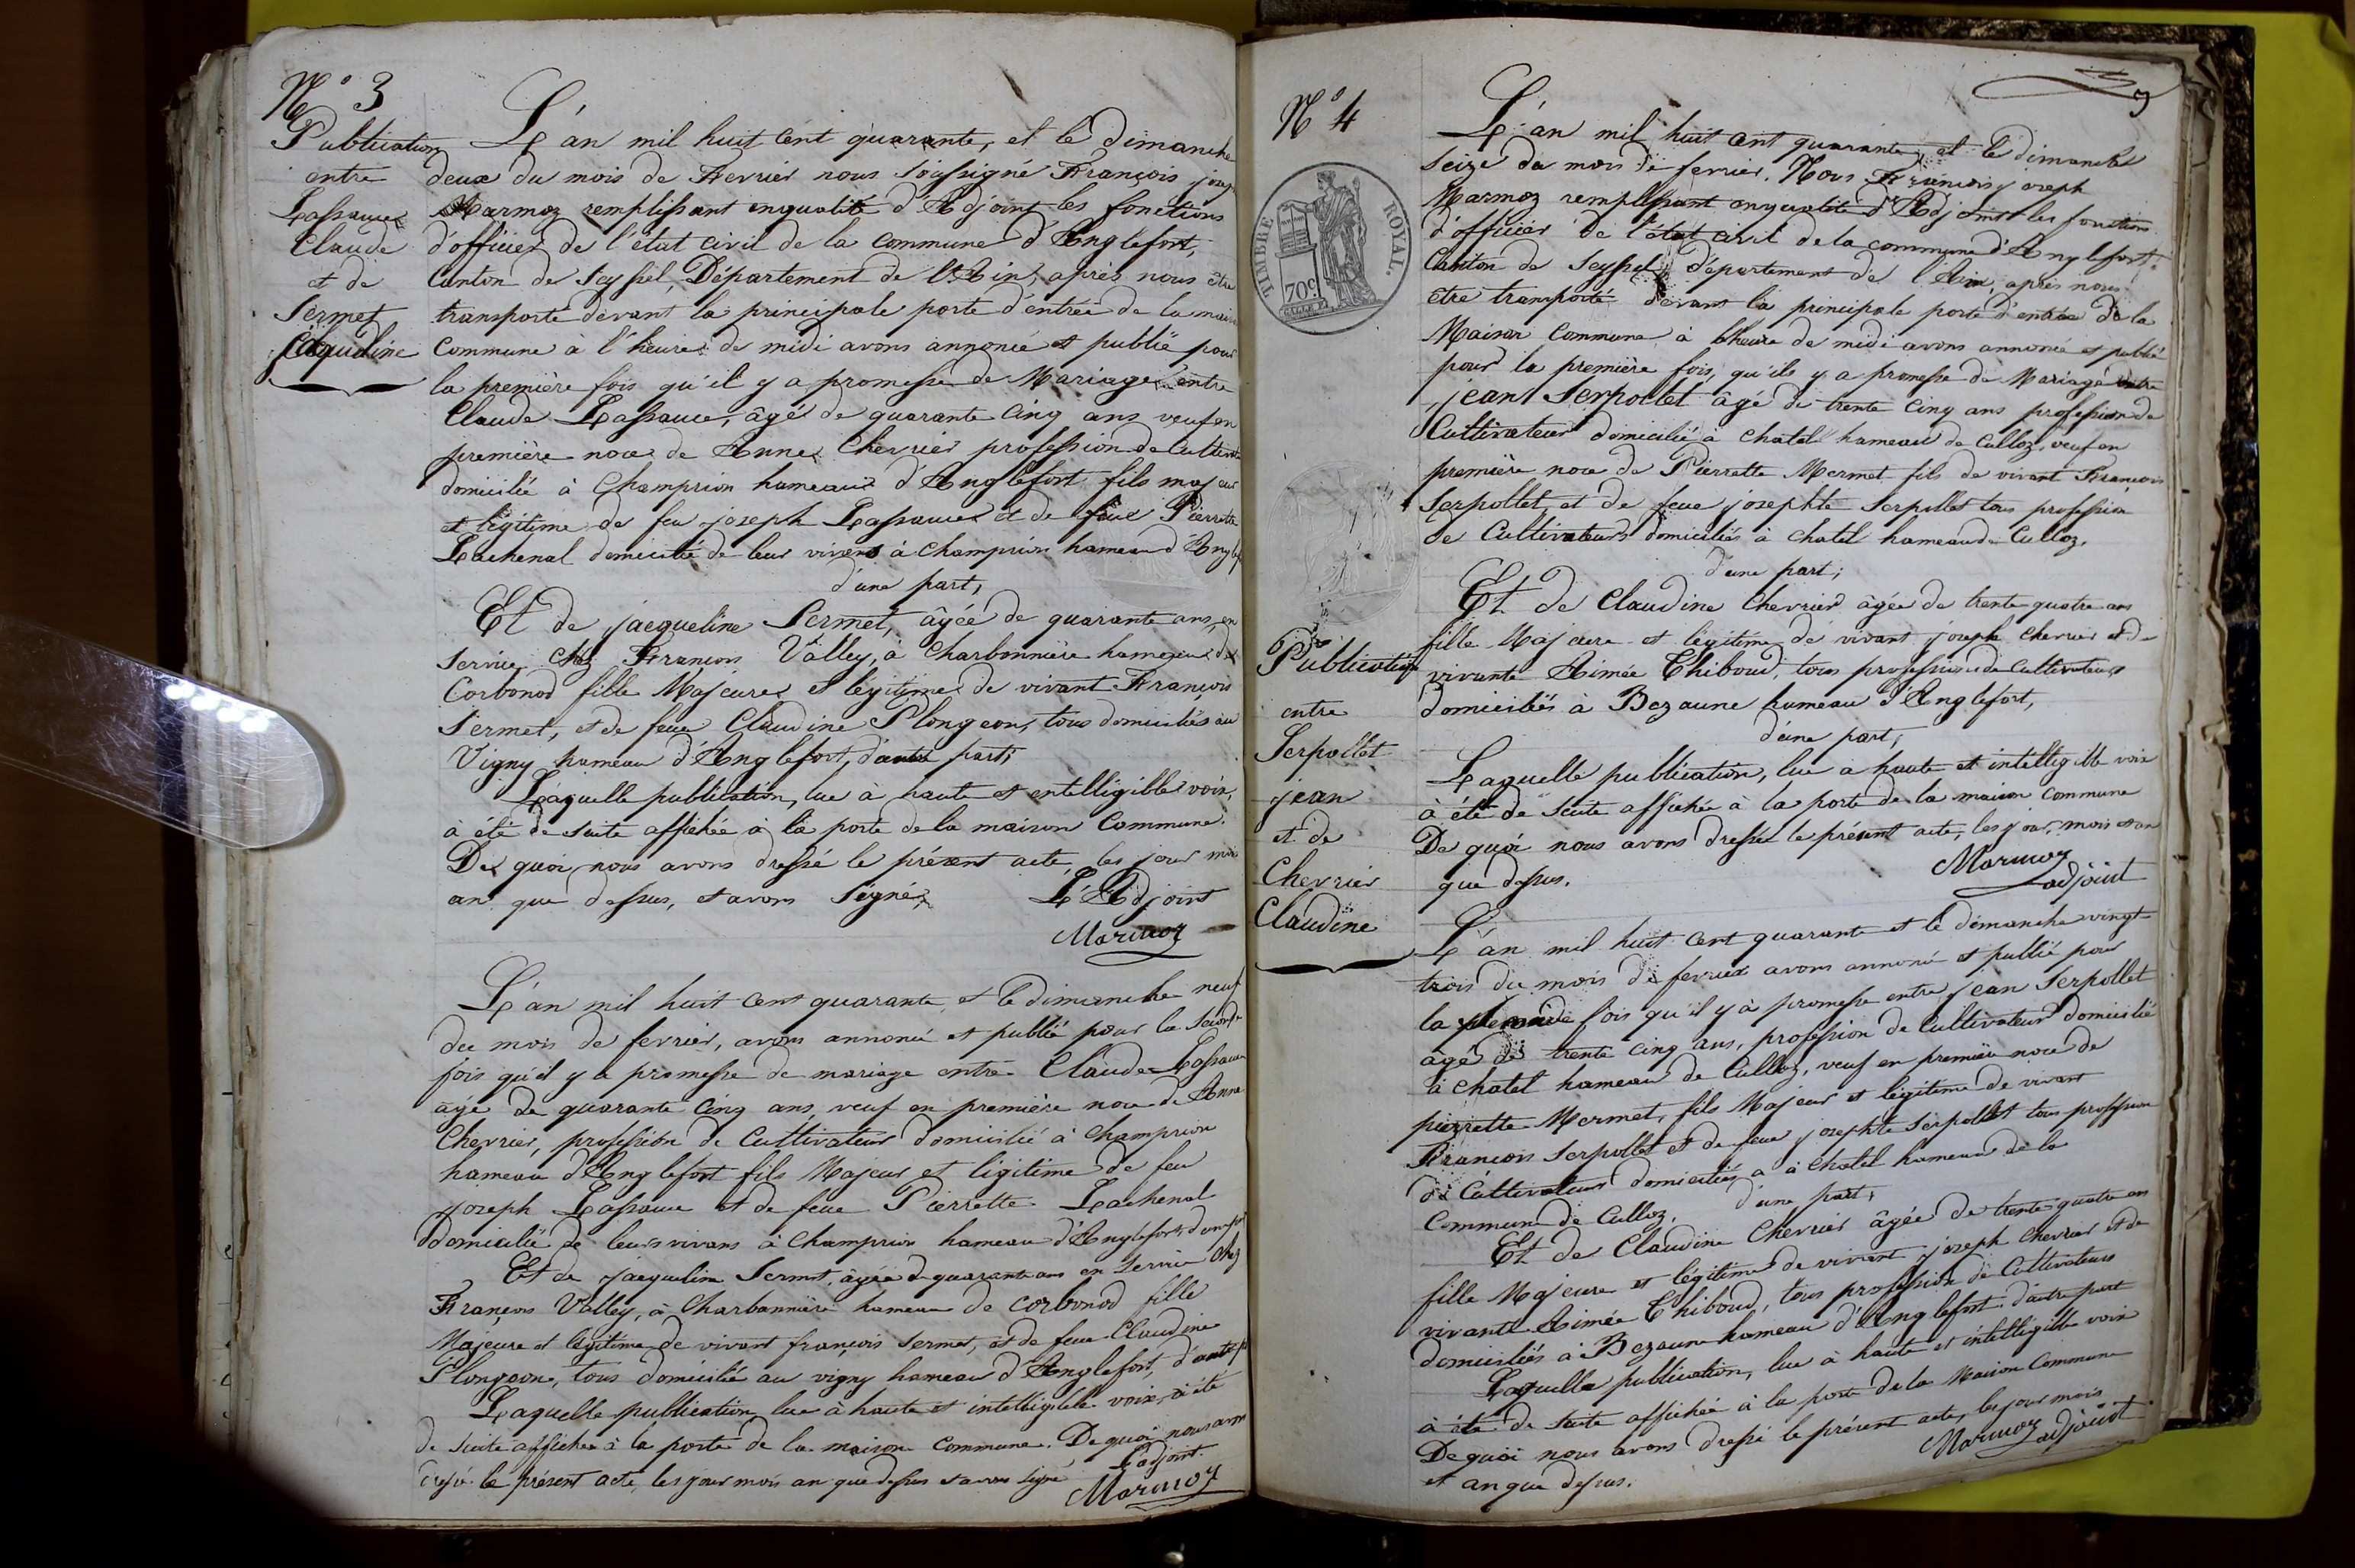 N° 3
Publication
entre
Lassauce
Claude
et de
Sermet
Jaqueline
L'an mil huit cent quarante, et le dimanche
deux du mois de Fevrier nous soussigné François josep
Marmoz remplissant en qualité d'Adjoint les fonctions
d'officier de l'état civil de la commune d'Anglefort,
Canton de Seyssel, Département de l'Ain, après nous être
transporté devant la principale porte d'entrée de la mais
commune à l'heure de midi avons annoncé et publié pour
la première fois qu'il y a promesse de Mariage entre
Claude Lassauce, âgé de quarante cinq ans veuf en
première noce de Anne Chevrier profession de Cultivate
domicilié à Champrion hameau d'Anglefort fils majeur
et légitime de feu joseph Lassauce et de feue Pierrette
Lachenal domicilié de leur vivans à champrion hameau d'Anglef
d'une part,
Et de jacqueline Sermet, âgée de quarante ans, en
service chez François Valley, à Charbonnière hameau de
Corbonod fille Majeure et légitime de vivant François
Sermet, et de feue Claudine Plongeon, tous domiciliés au
Vigny hameau d'Anglefort, d'autre part,
Laquelle publication, lue à haute et entelligible voix,
à été de suite affichée à la porte de la maison Commune.
De quoi nous avons dressé le présent acte, les jour mois
an que dessus, et avons signé L'Adjoint
Marmoz
L'an mil huit cent quarante, et le dimanche neuf
du mois de fevrier, avons annoncé et publié pour la seconde
fois qu'il y a promesse de mariage entre Claude Lassauce
âgé de quarante cinq ans, veuf en première noce de Anne
Chevrier, profession de Cultivateur domicilié à Champrion
hameau d'Anglefort fils Majeur et ligitime de feu
joseph Lassauce et de feue Pierrette Lachenal
domicilié de leurs vivans à Champrion hameau d'Anglefort, d'une part
Et de jacqueline Sermet, âgée de quarante ans en service chez
François Valley, à Charbonnière hameau de Corbonod fille
Majeure et légitime de vivant françois Sermet, et de feue Claudine
Plongeon, tous domicilié au vigny hameau d'Anglefort, d'autre p
Laquelle publication lue à haute et intelligible voix, à été
de suite affichée à la porte de la maison commune. De quoi nous avons
dressé le présent acte, les jour mois an que dessus et avons signé L'adjoint
Marmoz
N° 4
TIMBRE ROYAL.
70c
Publication
entre
Serpollet
jean
et de
Chevrier
Claudine
L'an mil huit cent quarante et le dimanche
seize du mois de fevrier. Nous François joseph
Marmoz remplissant en qualité d'Adjoint les fonctions
d'officier de l'état civil de la commune d'Anglefort
Canton de Seyssel département de l'Ain, après nous
être transporté devant la principale porte d'entrée de la
Maison Commune à l'heure de midi avons annoncé et publié
pour la première fois, qu'il y a promesse de Mariage entre
jean Serpollet âgé de trente cinq ans profession de
Cultivateur domicilié à chatel hameau de Culloz, veuf en
première noce de Pierrette Mermet fils de vivant François
Serpollet, et de feue josephte Serpollet tous profession
de Cultivateurs domiciliés à chatel hameau de Culloz.
d'une part;
Et de Claudine Chevrier âgée de trente quatre ans
fille Majeure et légitime de vivant joseph Chevrier et de
vivante Aimée Thiboud, tous profession de Cultivateurs
domiciliés à Bezaune hameau d'Anglefort,
d'une part,
Laquelle publication, lue à haute et intelligible voix
à été de suite affichée à la porte de la maison commune
De quoi nous avons dressé le présent acte, les jour, mois et an
que dessus. Marmoz
adjoint
L'an mil huit cent quarante et le dimanche vingt-
trois du mois de fevrier avons annoncé et publié pour
la fois qu'il y à promesse entre jean Serpollet
âgé de trente cinq ans, profession de Cultivateur domicilié
à chatel hameau de Culloz, veuf en première noce de
pierrette Mermet, fils Majeur et légitime de vivant
François Serpollet et de feue josephte Serpollet tous profession
de Cultivateurs domiciliés à à chatel hameau de la
Commune de Culloz. d'une part,
Et de Claudine Chevrier âgée de trente quatre ans
fille Majeure et légitime de vivant joseph Chevrier et de
vivante Aimée Thiboud, tous profession de Cultivateurs
domiciliés à Bezaune hameau d'Anglefort d'autre part
Laquelle publication, lue à haute et intelligible voix
à été de suite affichée à la porte de la Maison Commune
De quoi nous avons dressé le présent acte, les jour mois
et an que dessus. Marmoz adjoint